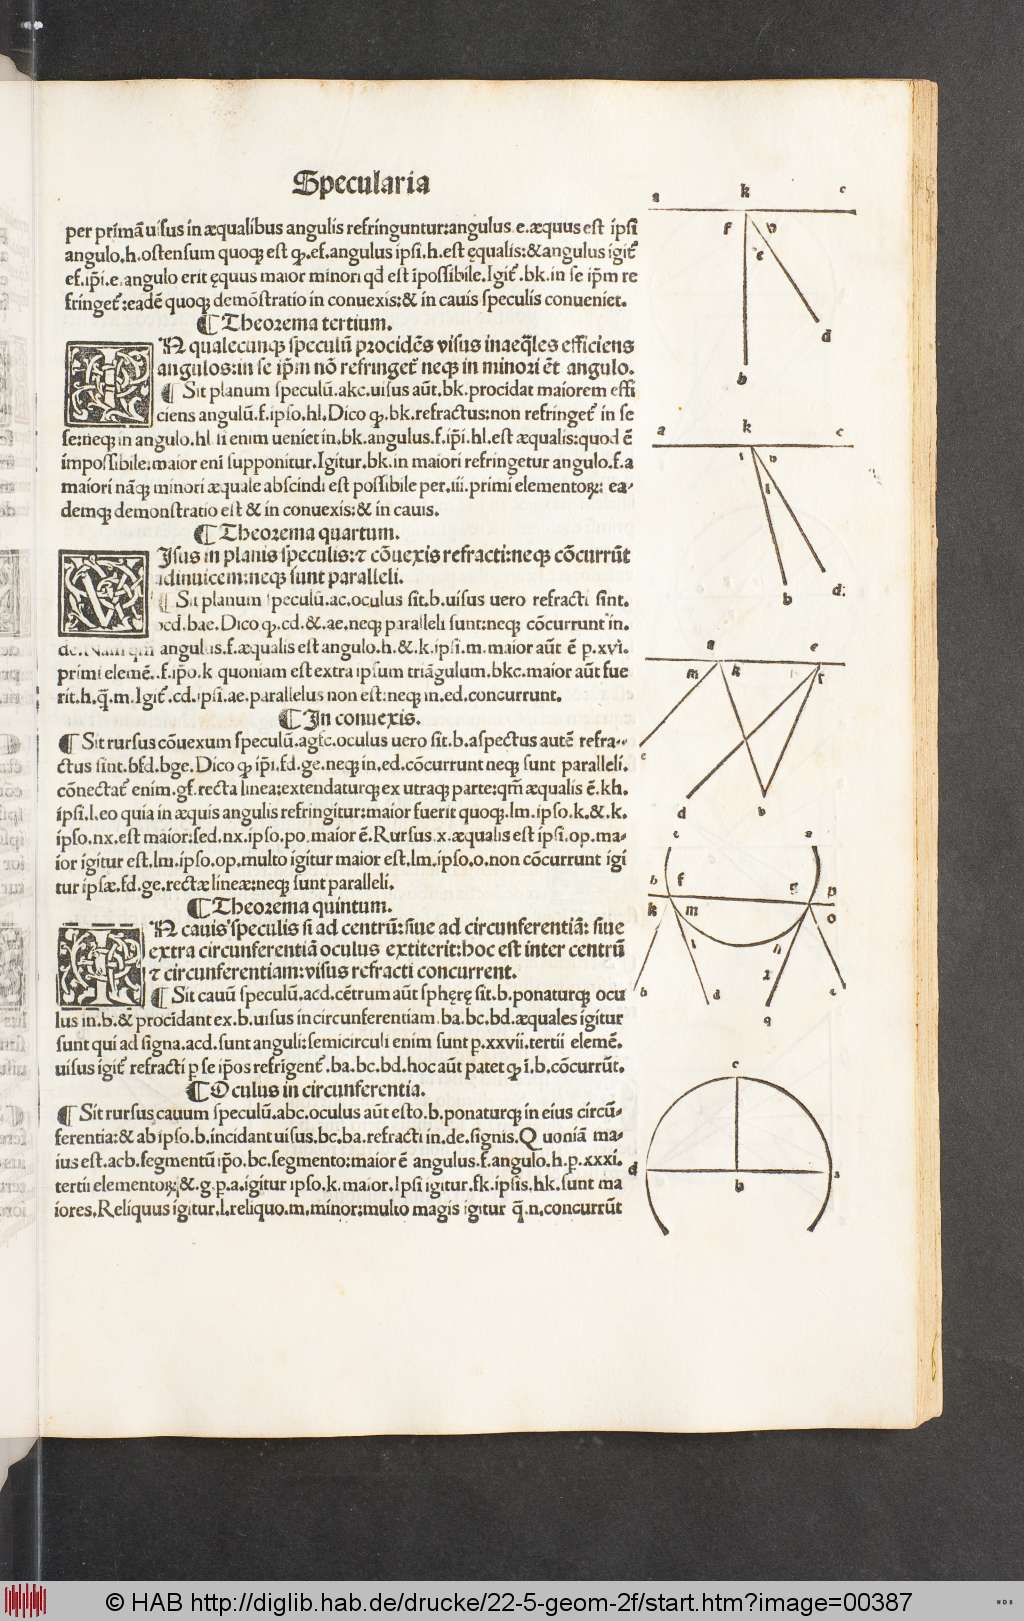 Specularia
per primã uisus in æqualibus angulis refringuntur:angulus.e.æquus est ipsi
angulo.h.ostensum quoqȝ est ꝙ.ef.angulus ipsi.h.est ęqualis:&angulus igit᷑
ef.ip̃i.e.angulo erit ęquus maior minori qd est ĩpossibile.Igit᷑.bk.in se ip̃m re
fringet᷑:eadẽ quoqȝ demõstratio in conuexis:& in cauis speculis conueniet.
¶Theorema tertium.
IN qualecunqȝ speculũ procidẽs visus inaeq̃les efficiens
angulos:in se ip̃m nõ refringet᷑ neqȝ in minori ẽt angulo.
¶ Sit planum speculũ.akc.uisus aũt.bk.procidat maiorem effi
ciens angulũ.f.ipso.hl.Dico ꝙ.bk.refractus:non refringet᷑ in se
se:neqȝ in angulo.hl si enim ueniet in.bk.angulus.f.ip̃i.hl.est æqualis:quod ẽ
ĩmpossibile:maior enĩ supponitur.Igitur.bk.in maiori refringetur angulo.f.a
maiori nãqȝ minori æquale abscindi est possibile per.iii.primi elementoꝝ: ea-
demqȝ demonstratio est & in conuexis:& in cauis.
¶Theorema quartum.
VIsus in planis speculis:⁊ cõuexis refracti:neqȝ cõcurrũt
adinuicem:neqȝ sunt paralleli.
¶ Sit planum speculũ.ac.oculus sit.b.uisus uero refracti sint.
bcd.bae.Dico ꝙ.cd.&.ae.neqȝ paralleli sunt:neqȝ cõcurrunt in.
de.Nam qm̃ angulus.f.æqualis est angulo.h.&.k.ipsi.m.maior aũt ẽ p̱.xvi.
primi elemẽ..f.ip̃o.k quoniam est extra ipsum triãgulum.bkc.maior aũt fue
rit.h.q̃.m.Igit᷑.cd.ipsi.ae.parallelus non est:neqȝ in.ed.concurrunt.
¶In conuexis.
¶ Sit rursus cõuexum speculũ.agfc.oculus uero sit.b.aspectus autẽ refra-
ctus sint.bfd.bge.Dico ꝙ ip̃i.fd.ge.neqȝ in.ed.cõcurrunt neqȝ sunt paralleli.
cõnectat᷑ enim.gf.recta linea:extendaturqȝ ex utraqȝ parte:qm̃ æqualis ẽ.kh.
ipsi.l.eo quia in æquis angulis refringitur:maior fuerit quoqȝ.lm.ipso.k.&.k.
ipso.nx.est maior:sed.nx.ipso.po.maior ẽ.Rursus.x.æqualis est ipsi.op.ma-
ior igitur est.lm.ipso.op.multo igitur maior est.lm.ipso.o.non cõcurrunt igi
tur ipsæ.fd.ge.rectæ lineæ:neqȝ sunt paralleli.
¶Theorema quintum.
IN cauis speculis si ad centrũ:siue ad circunferentiã: siue
extra circunferentiã oculus extiterit:hoc est inter centrũ
⁊ circunferentiam:visus refracti concurrent.
¶ Sit cauũ speculũ.acd.cẽtrum aũt sphęrę sit.b.ponaturqȝ ocu
lus in.b.& procidant ex.b.uisus in circunferentiam.ba.bc.bd.æquales igitur
sunt qui ad signa.acd.sunt anguli:semicirculi enim sunt p̱.xxvii.tertii elemẽ.
uisus igit᷑ refracti p̱ se ip̃os refrĩgent᷑.ba.bc.bd.hoc aũt patet ꝙ ĩ.b.cõcurrũt.
¶Oculus in circunferentia.
¶ Sit rursus cauum speculũ.abc.oculus aũt esto.b.ponaturqȝ in eius circũ-
ferentia:& ab ipso.b.incidant uisus.bc.ba.refracti in.de.signis.Quoniã ma-
ius est.acb.segmentũ ip̃o.bc.segmento:maior ẽ angulus.f.angulo.h.p̱.xxxi.
tertii elementoꝝ:&.g.p̱.a.igitur ipso.k.maior.Ipsi igitur.fk.ipsis.hk.sunt ma
iores.Reliquus igitur.l.reliquo.m.minor:multo magis igitur q̃.n.concurrũt
a k c
f
e
d
b
a k c
l
d
b
a e
m k f
c
d b
c a
b f g p
k m o
l n
b d x e
q
c
d
b
© HAB http://diglib.hab.de/drucke/22-5-geom-2f/start.htm?image=00387